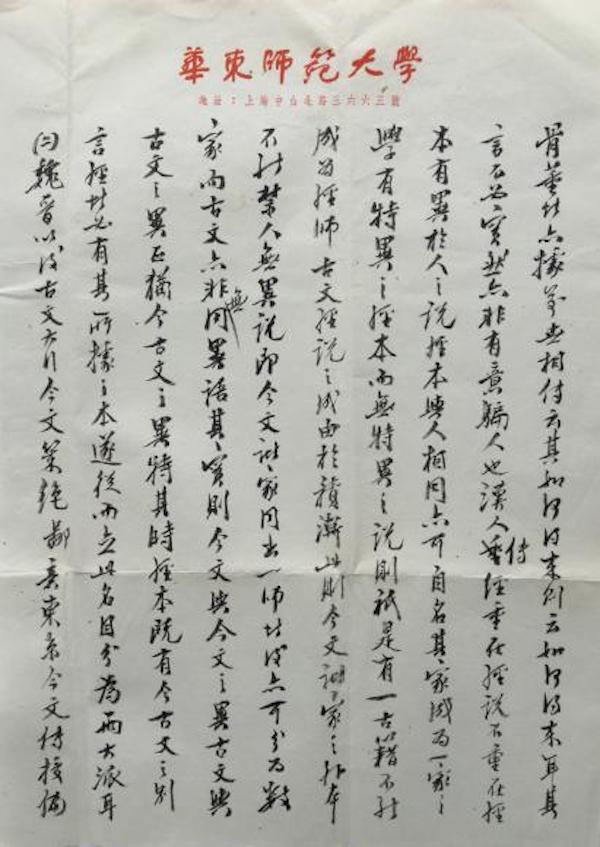 華東師範大學
地址：上海中山北路三六六三號
骨董者亦據前世相付云其如何得來則云如何得來耳其
言不必實然亦非有意騙人也漢人傳經重在經說不重在經
本有異於人之說經本與人相同亦可自名其家成為一家之
學有特異之經本而無特異之說則祇是有一古籍不能
成為經師古文經說之成由於積漸此則今文諸家之非本
不能禁人無異說即今文諸家同出一師者後亦可分為數
家而古文亦非同無異語其實則今文與今文之異古文與
古文之異正猶今古文之異特其時經本既有今古文之別
言經者必有其所據之本遂從而立此名目分為兩大派耳
㈡魏晉以後古文大行今文衰絕鄙意東京今文傳授偏